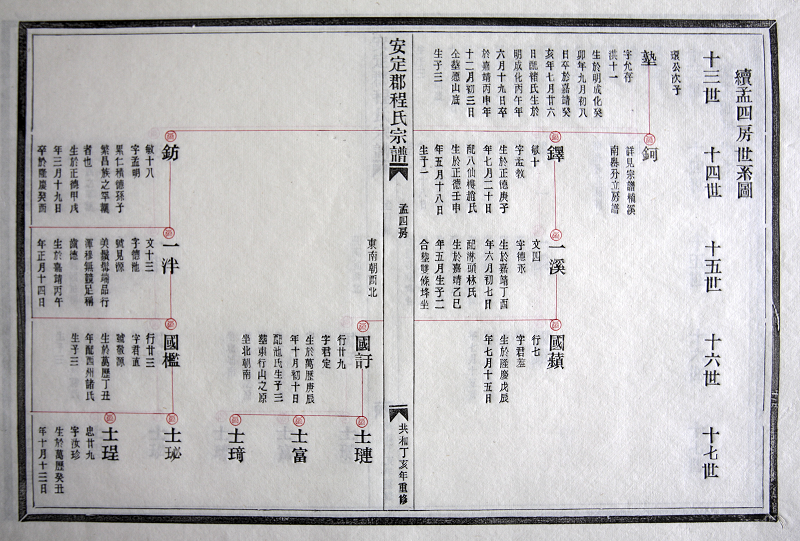 續孟四房世系圖
十三世
十四世
十五世
十六世
十七世
環公次子
塾
字允存
洪十一
生於明成化癸
卯年九月初八
日卒於嘉靖癸
亥年七月廿六
日配褚氏生於
明成化丙午年
六月十九日卒
於嘉靖丙申年
十二月初三日
仝墓應山底
生子三
鈳
詳見宗譜
南縣分立房譜
鐸
敏十
字孟敎
生於正德庚子
年七月二十日
配八仙樓趙氏
生於正德壬申
年五月十八日
生子一
一溪
文四
字德永
生於嘉靖丁酉
年六月初七日
配淋頭林氏
生於嘉靖乙巳
年五月生子二
合墓雙條垟坐
國蘋
行七
字君羞
生於隆慶戊辰
年七月十五日
安定郡程氏宗譜
孟四房
共和丁亥年重修
東南朝西北
國訏
行廿九
字君定
生於萬歷庚辰
年十月初十日
配池氏生子三
墓東行山之原
坐北朝南
士璉
士富
士琦
鈁
敏十八
字孟明
累仁積德孫子
繁昌族之罕覯
者也
生於正德甲戌
年三月十九日
卒於隆慶癸酉
一泮
文十三
字德池
號見源
美鬚髯端品行
渾樸無競足稱
讜德
生於嘉靖丙午
年正月十四日
國檻
行廿三
字君直
號敬源
生於萬歷丁丑
年配西州諸氏
生子三
士珌
士珵
忠廿九
字汝珍
生於萬歷癸丑
年十月十三日